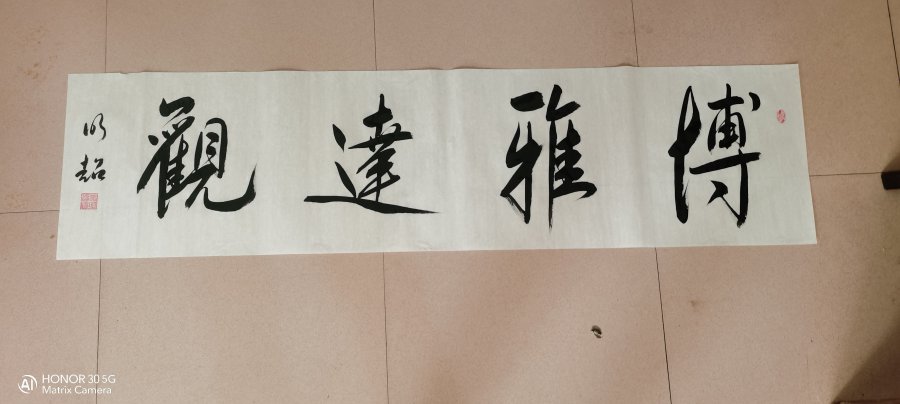 博雅達觀
明超
HONOR 30 5G
Matrix Camera